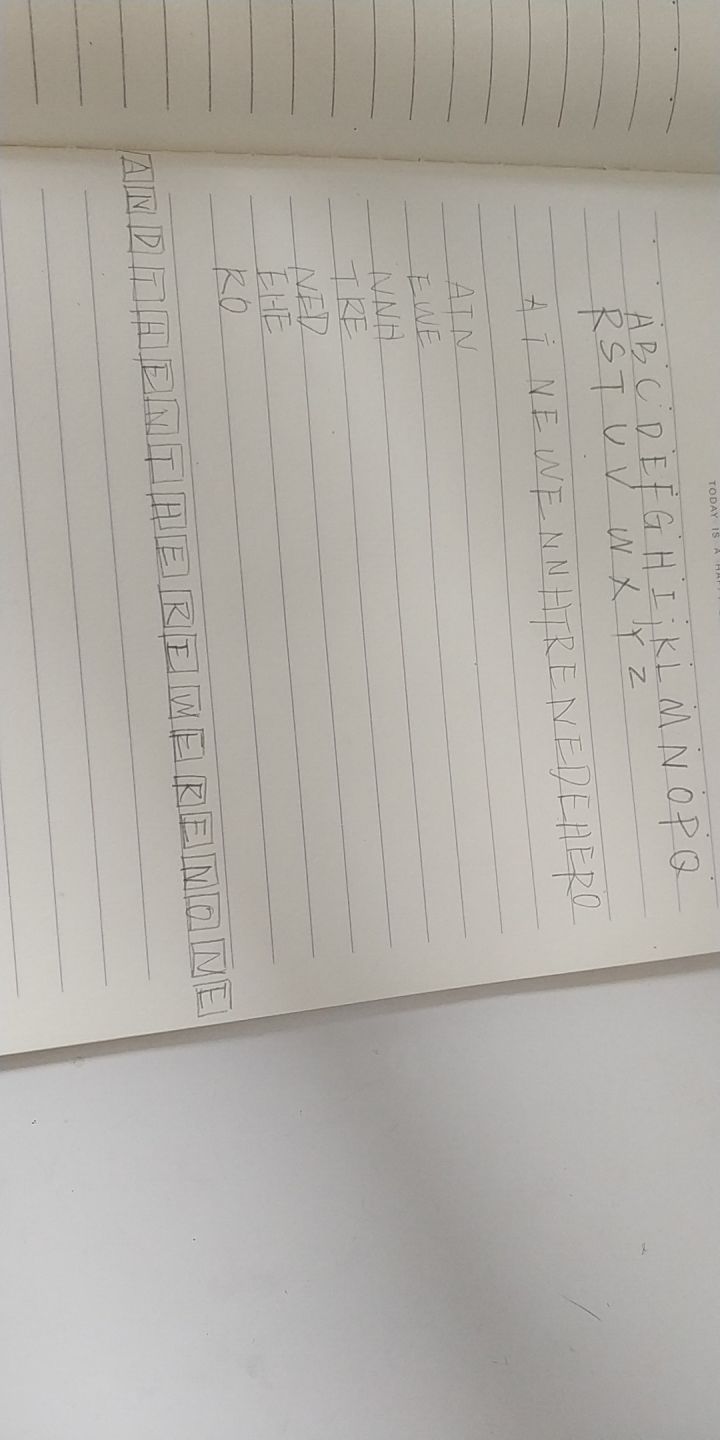 TODAY IS A
ABCDEFGHIJKLMNOPQ
RSTUVWXYZ
ATNEWENNHTRENEDEHERO
ATN
EWE
NNH
TRE
NED
EHE
RO
ANDTHENTHEREWERENONE